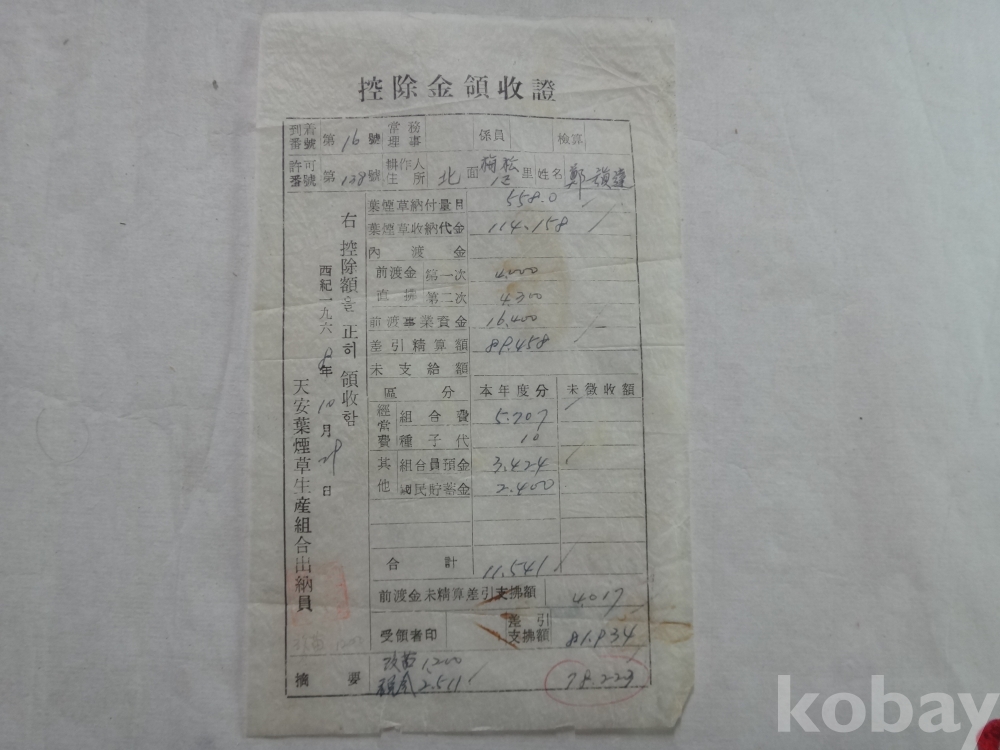 控除金領收證
到着番號 第16號 常務理事 係員 檢算
許可番號 第128號 耕作人住所 北面 梅松 里 姓名 鄭
葉煙草納付量目 558.0
葉煙草收納代金 114.158
內渡金
前渡金 第一次 4.000
直拂 第二次 4.300
前渡事業資金 16.400
差引精算額 89.458
未支給額
區分 本年度分 未徵收額
經常費 組合費 5.707
種子代 10
其他 組合員預金 3.424
國民貯蓄金 2.400
合計 11.541
前渡金未精算差引支拂額 4017
受領者印 差引支拂額 81.934
摘要 改苗 1,200
稅金 2.511
78.223
右 控除額을 正히 領收함
西紀一九六8年10月29日
天安葉煙草生産組合出納員
kobay